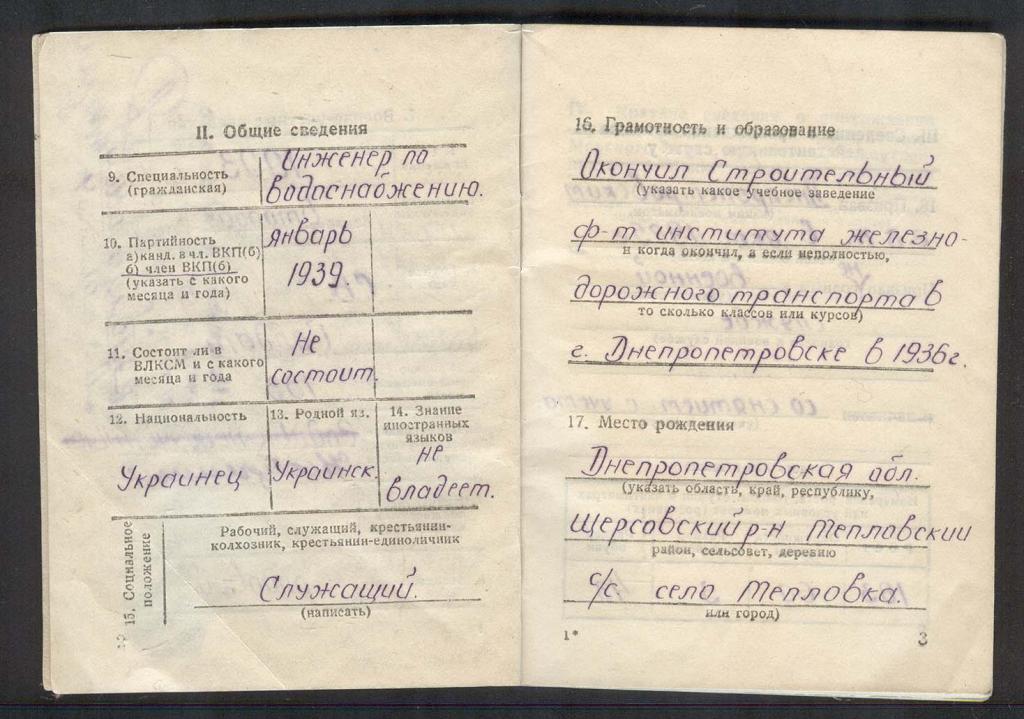 II. Общие сведения
9. Специальность
(гражданская)
Инженер по
водоснабжению.
10. Партийность
а) канд. в чл. ВКП(б)
б) член ВКП(б)
(указать с какого
месяца и года)
январь
1939.
11. Состоит ли в
ВЛКСМ и с какого
месяца и года
Не
состоит.
12. Национальность
Украинец
13. Родной яз.
Украинск.
14. Знание
иностранных
языков
не
владеет.
15. Социальное
положение
Рабочий, служащий, крестьянин-
колхозник, крестьянин-единоличник
Служащий.
(написать)
16. Грамотность и образование
Окончил Строительный
(указать какое учебное заведение
ф-т института железно-
и когда окончил, а если неполностью,
дорожного транспорта в
то сколько классов или курсов)
г. Днепропетровске в 1936г.
17. Место рождения
Днепропетровская обл.
(указать область, край, республику,
Щерсовский р-н Тепловский
район, сельсовет, деревню
с/с село Тепловка.
или город)
1*
3